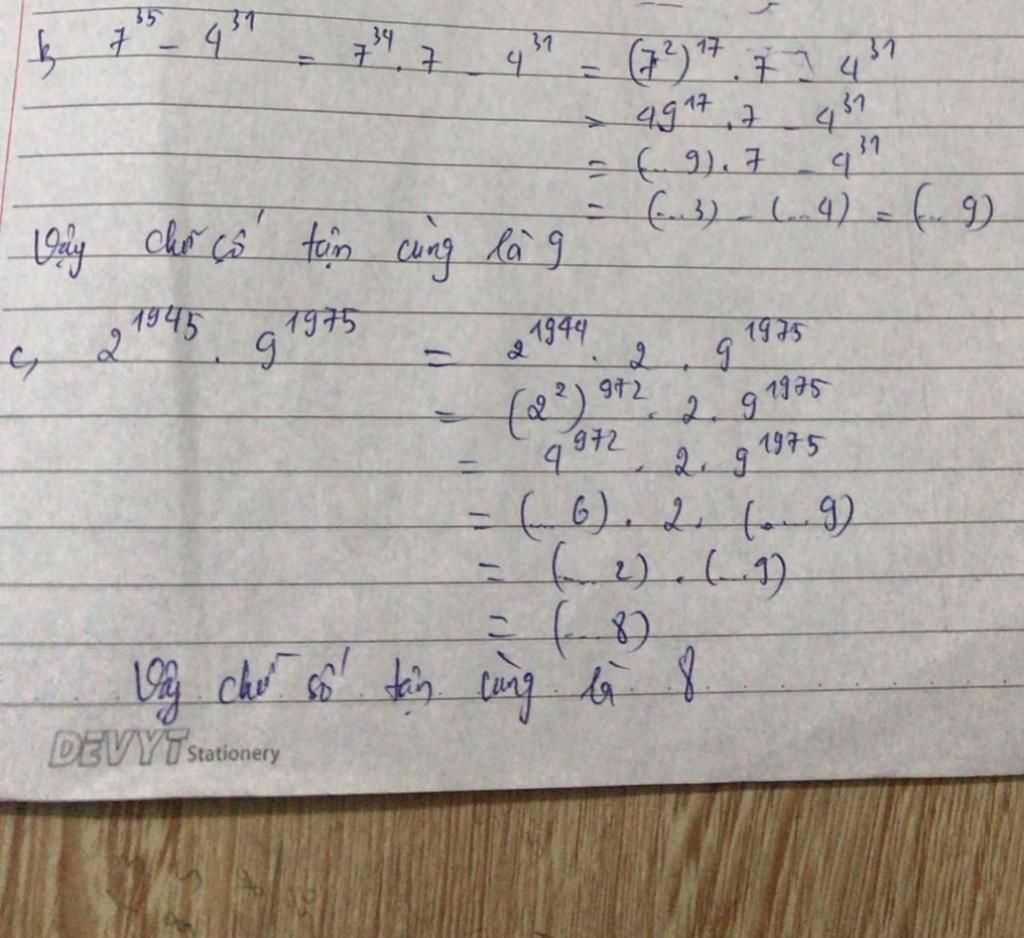 b, 7^35 - 4^31 = 7^34 . 7 - 4^31 = (7^2)^17 . 7 - 4^31
= 49^17 . 7 - 4^31
= (...9). 7 - 4^31
= (...3) - (...4) = (...9)
Vậy chữ số tận cùng là 9
c, 2^1945 . 9^1975 = 2^1944 . 2 . 9^1975
= (2^2)^972 . 2 . 9^1975
= 4^972 . 2 . 9^1975
= (...6) . 2 . (....9)
= (....2) . (...9)
= (...8)
Vậy chữ số tận cùng là 8
DEVYT Stationery